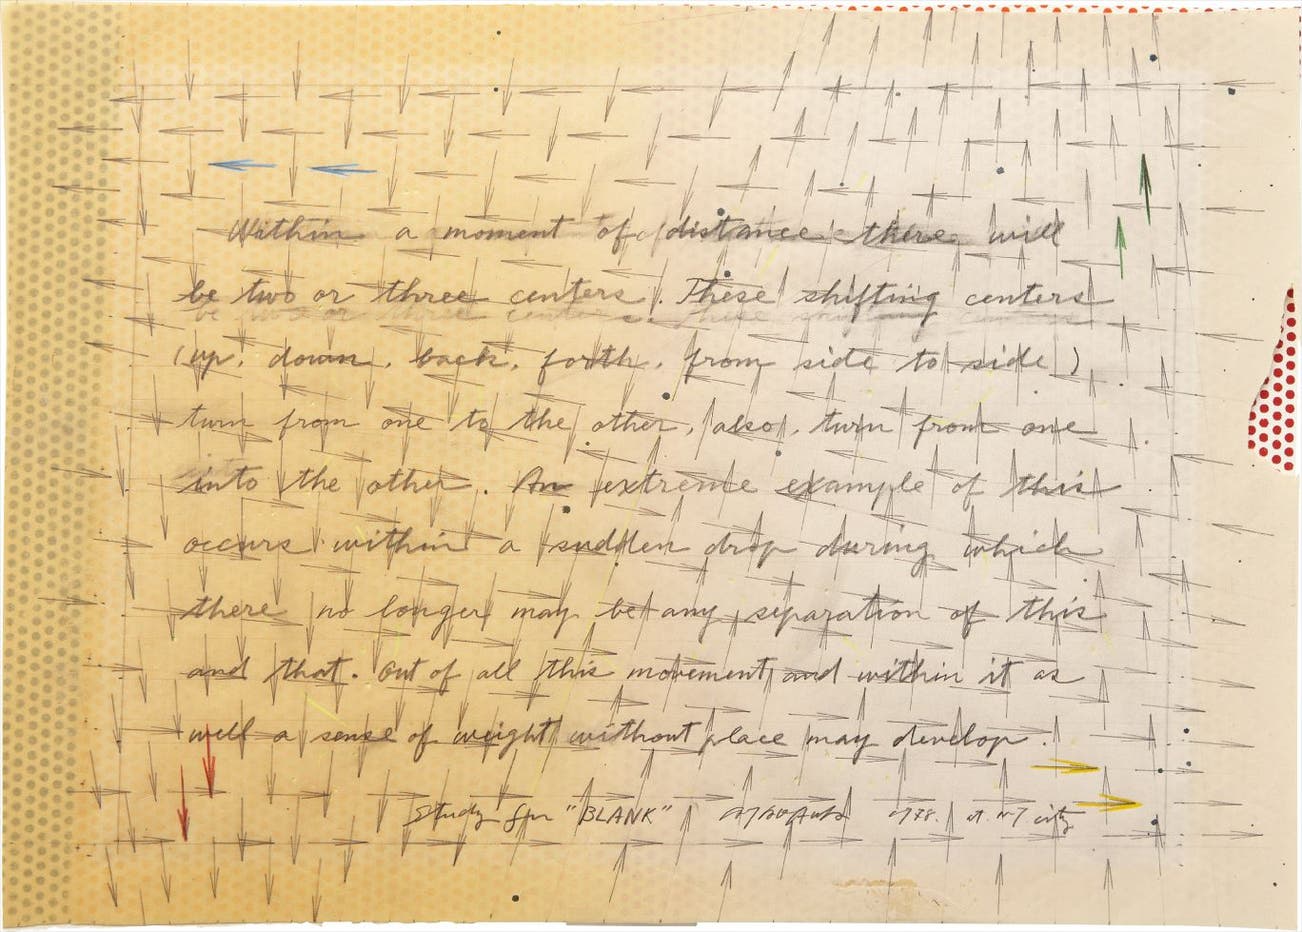 Within a moment of distance there will
be two or three centers. These shifting centers
(up, down, back, forth, from side to side)
turn from one to the other, also, turn from one
into the other. An extreme example of this
occurs within a sudden drop during which
there no longer may be any separation of this
and that. Out of all this movement and within it as
well a sense of weight without place may develop.
Study for "BLANK" at N Y city